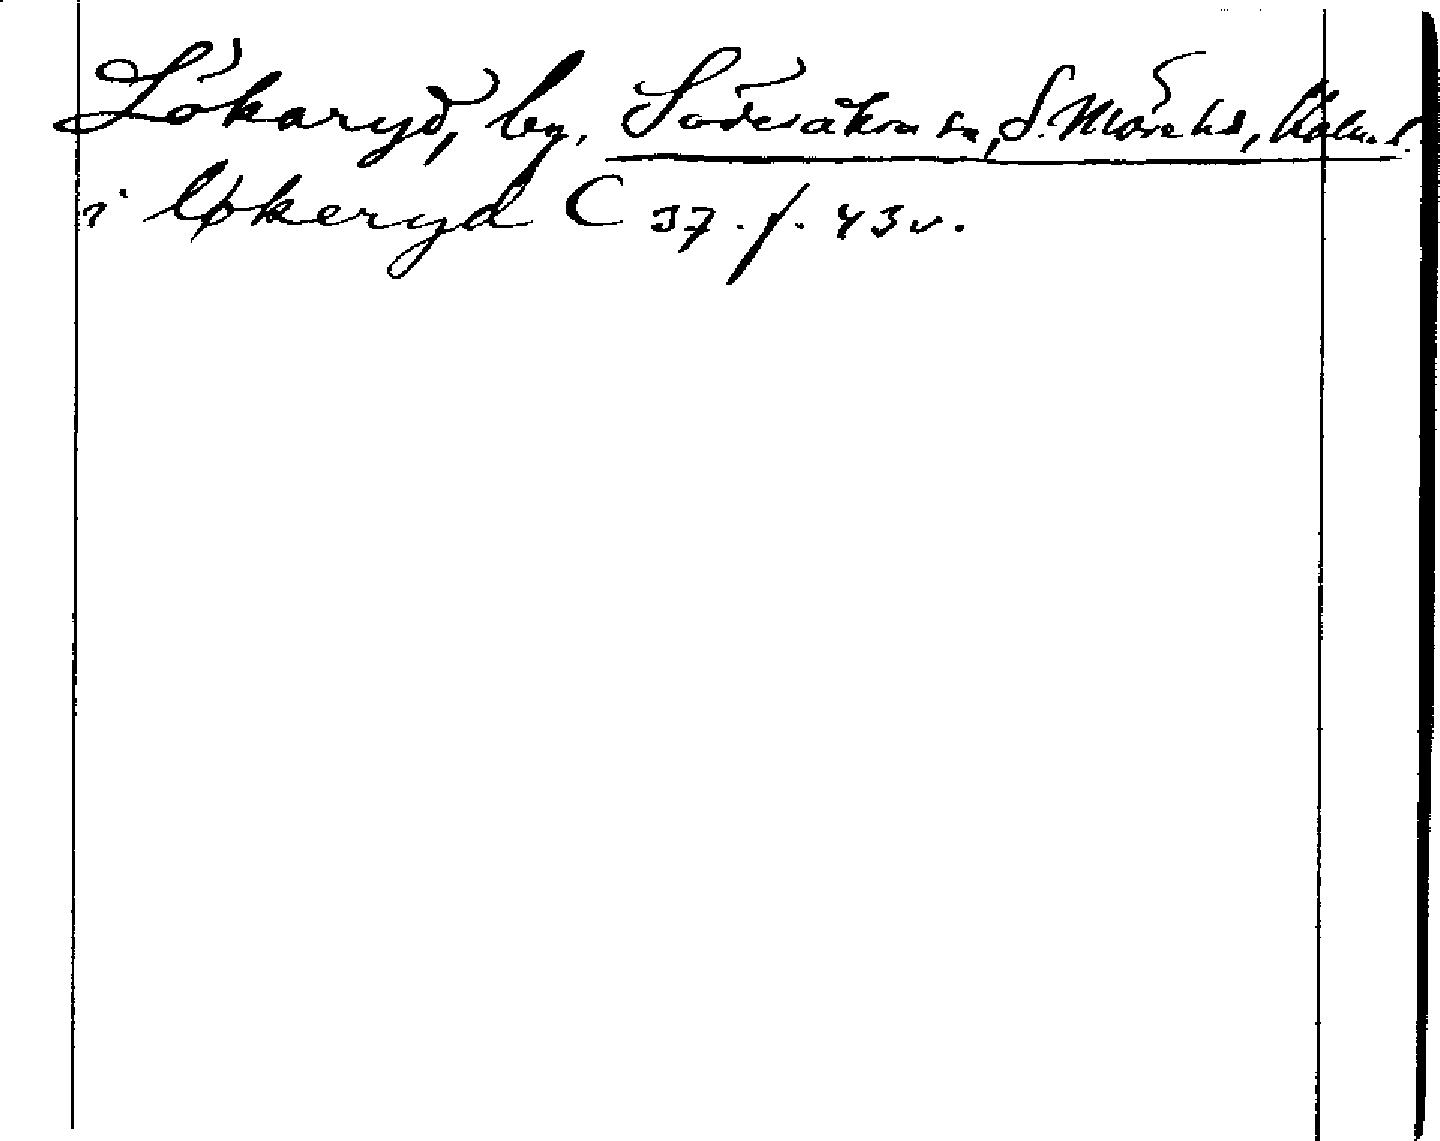 Lökaryd, by, Söderåkra sn, S. Möre hd, Kalm. l.
i løkeryd C 37. f. 43 v.